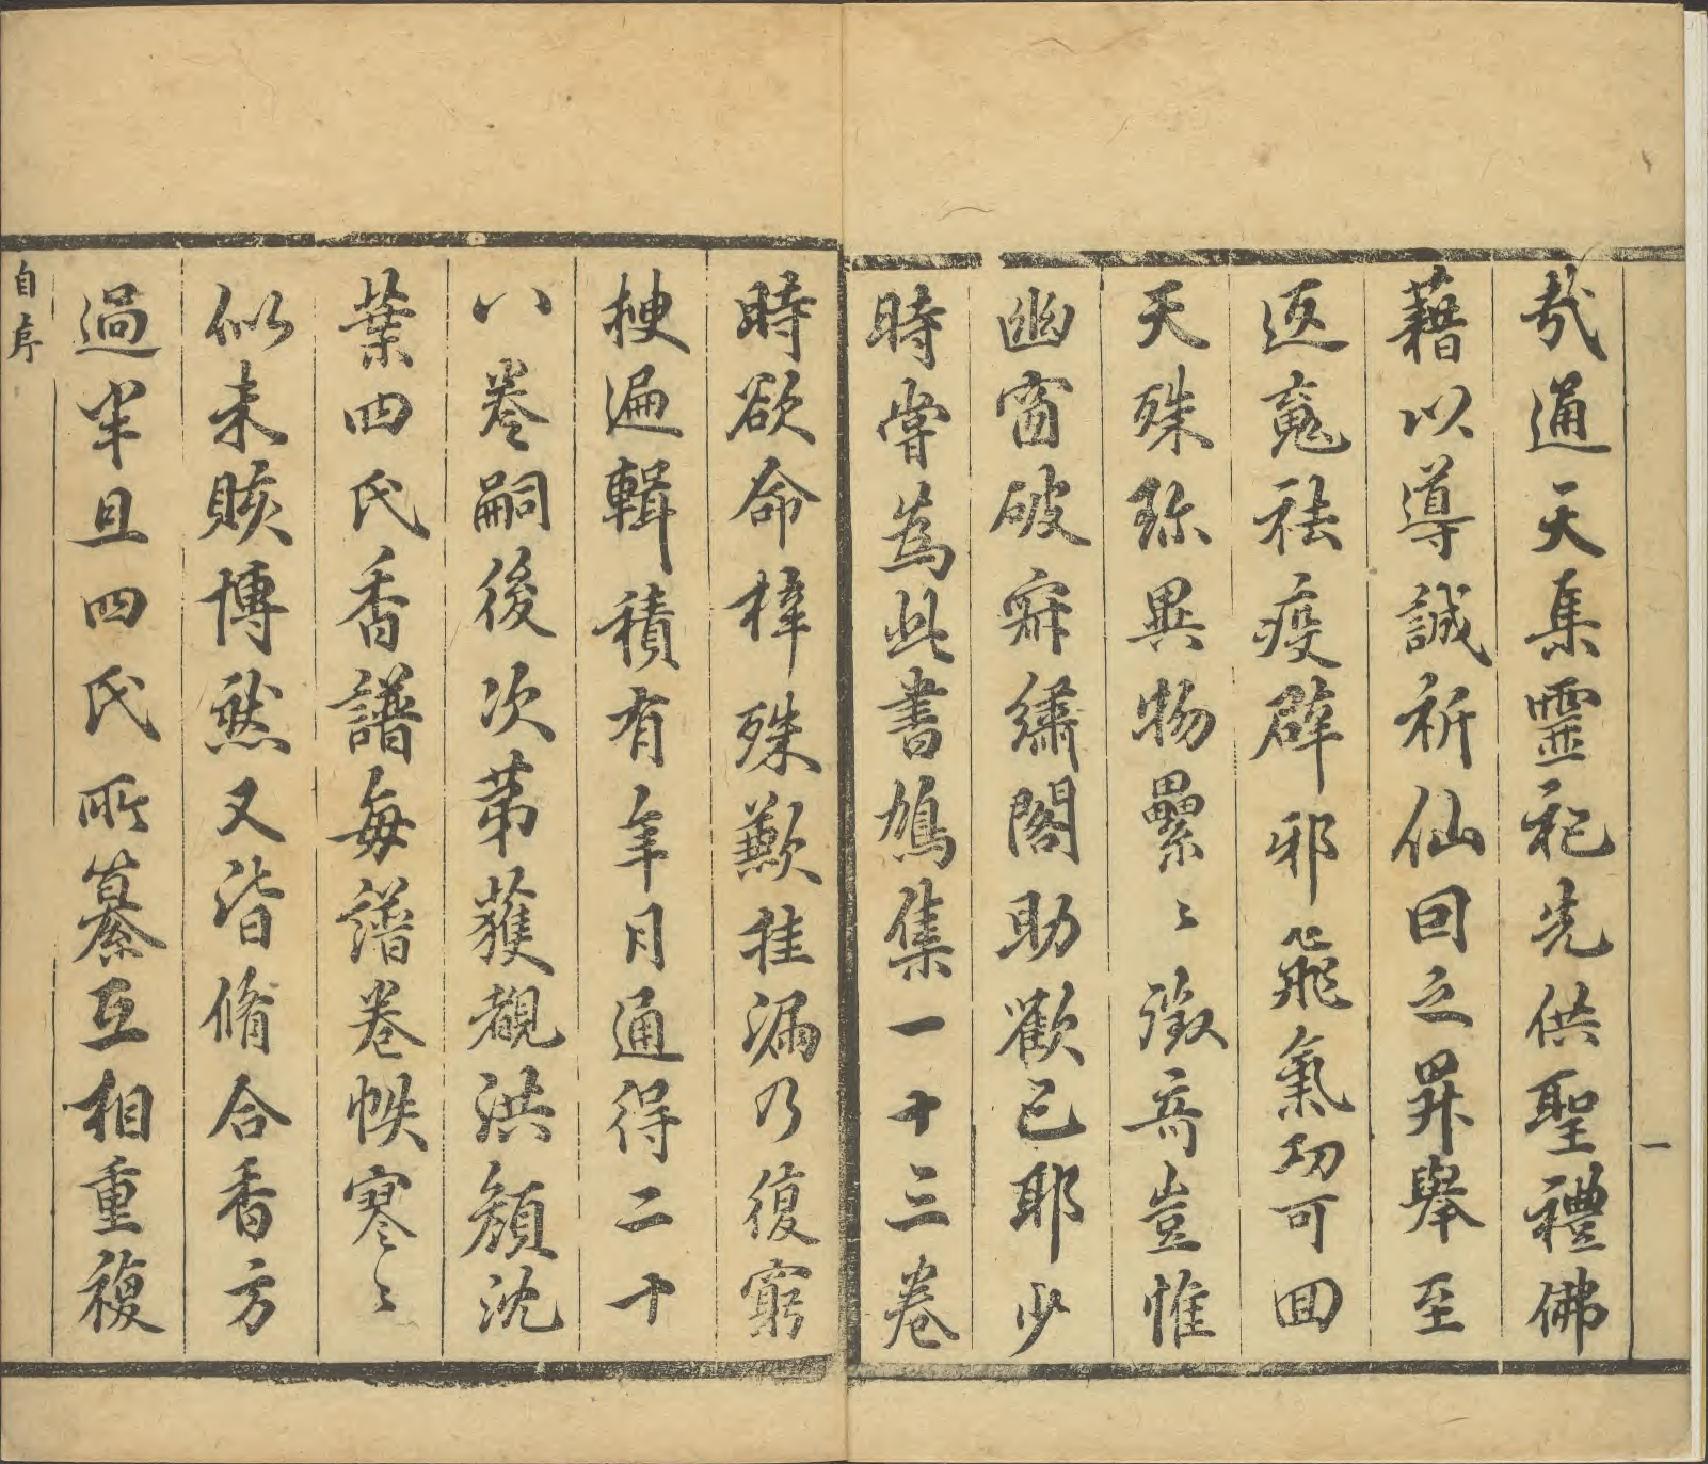 哉通天集靈祀先供聖禮佛
藉以導誠祈仙因之昇舉至
返魂祛疫辟邪飛氣功可回
天殊珎異物纍〻徵奇豈惟
幽窗破寂繡閣助歡已耶少
時嘗爲此書鳩集一十三卷
時欲命梓殊歉挂漏乃復窮
搜遍輯積有年月通得二十
八卷嗣後次第獲覩洪顏沈
葉四氏香譜每譜卷帙寥〻
似未賅博然又皆脩合香方
過半且四氏所纂互相重複
自序
一